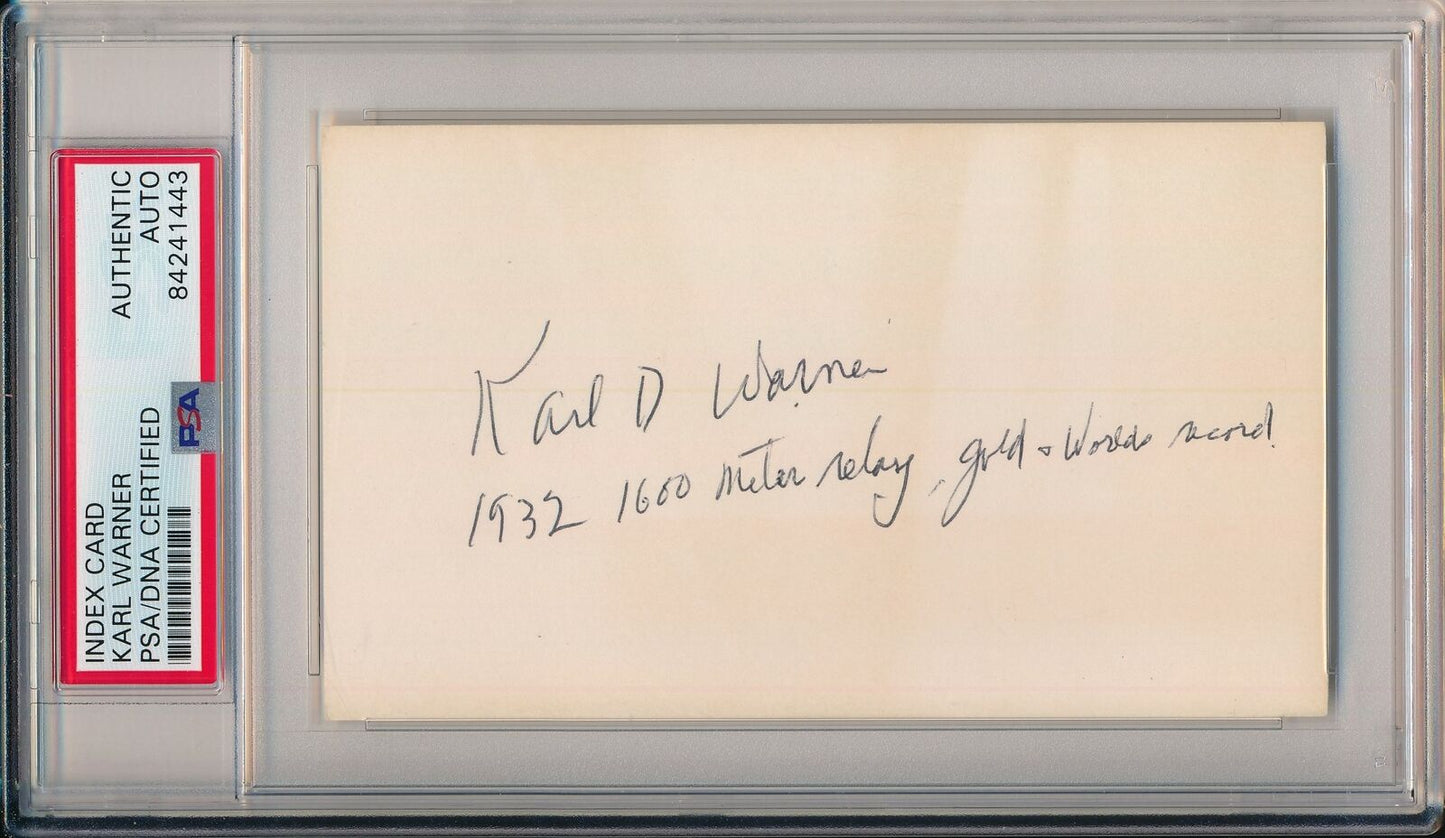 INDEX CARD AUTHENTIC
KARL WARNER AUTO
PSA/DNA CERTIFIED 84241443
PSA
Karl D Warner
1932 1600 meter relay, gold + Worlds record.